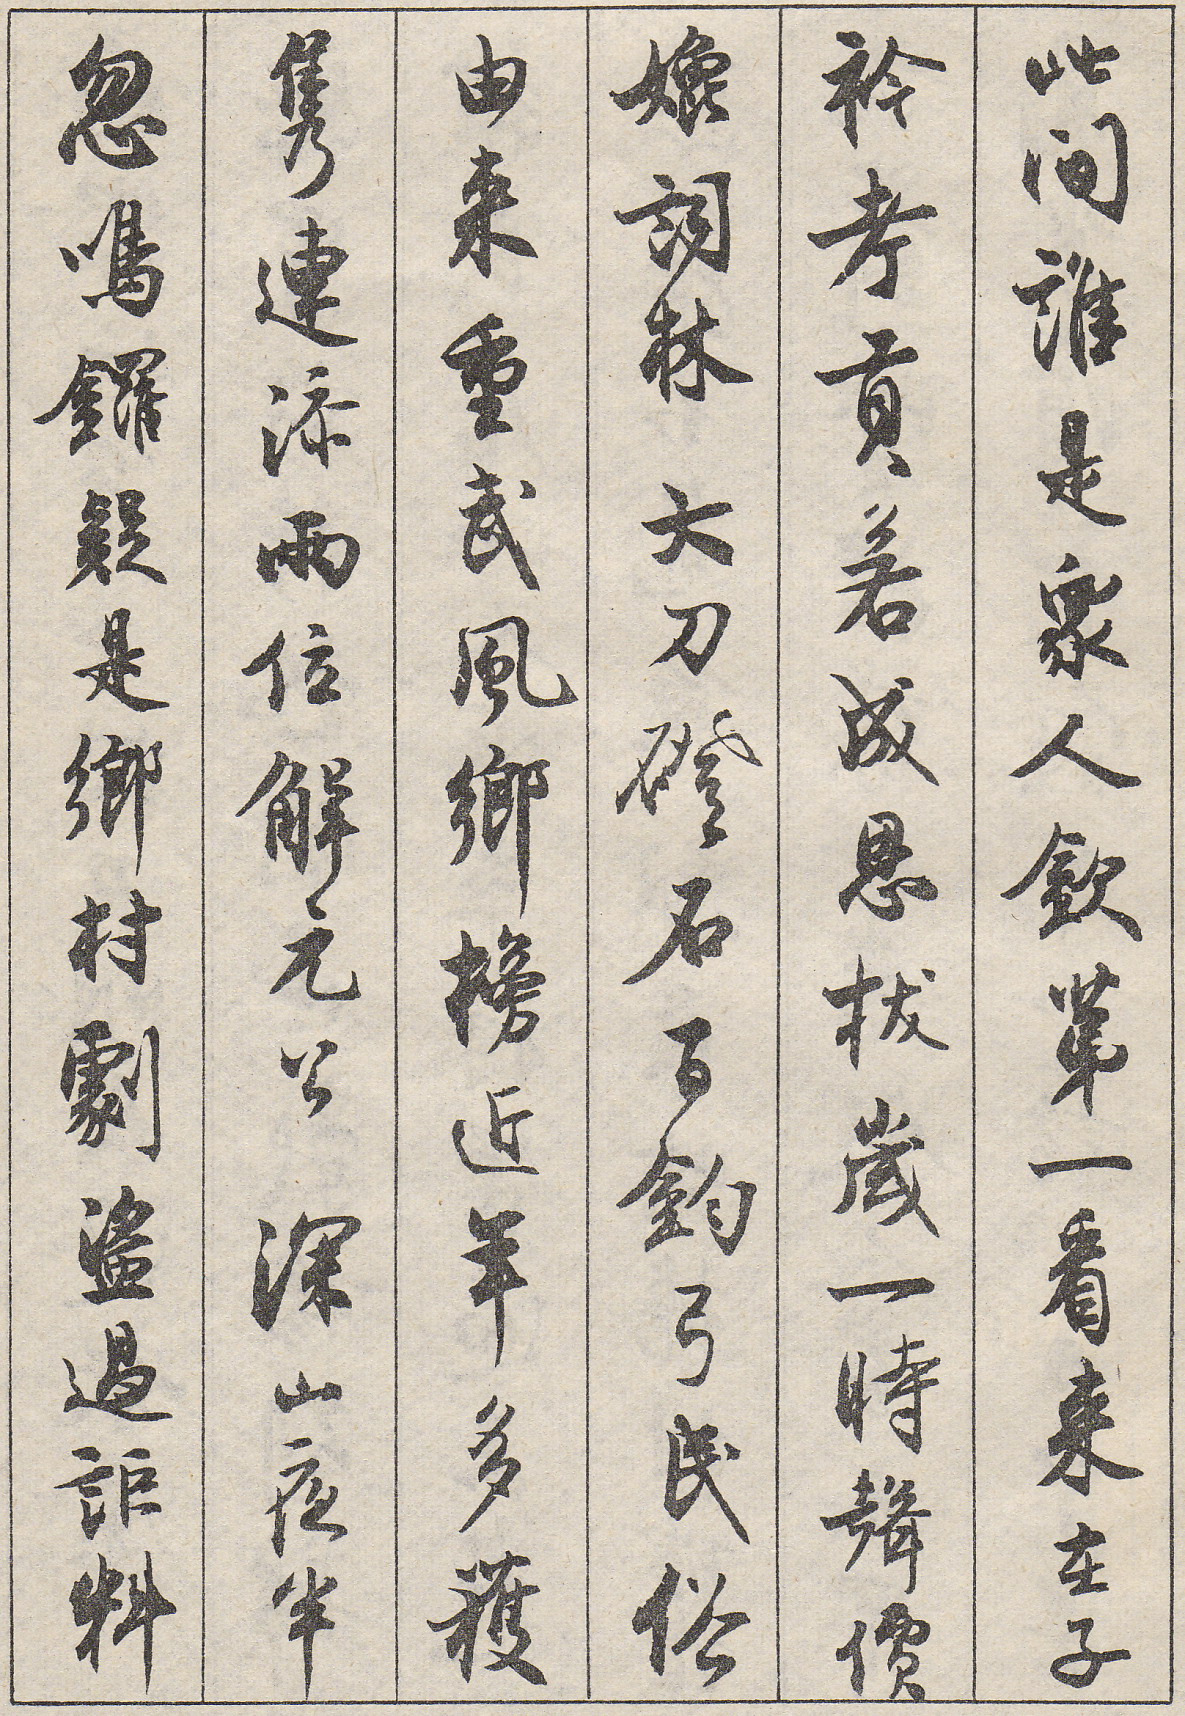 此间誰是衆人欽第一看来在子
衿考貢若成恩拔歲一時聲價
嬔詞林 大刀磴石百鈞弓民俗
由来重武風鄉榜近年多獲
雋連添兩位解元公 深山夜半
忽鳴鑼疑是鄉村劇盜過詎料